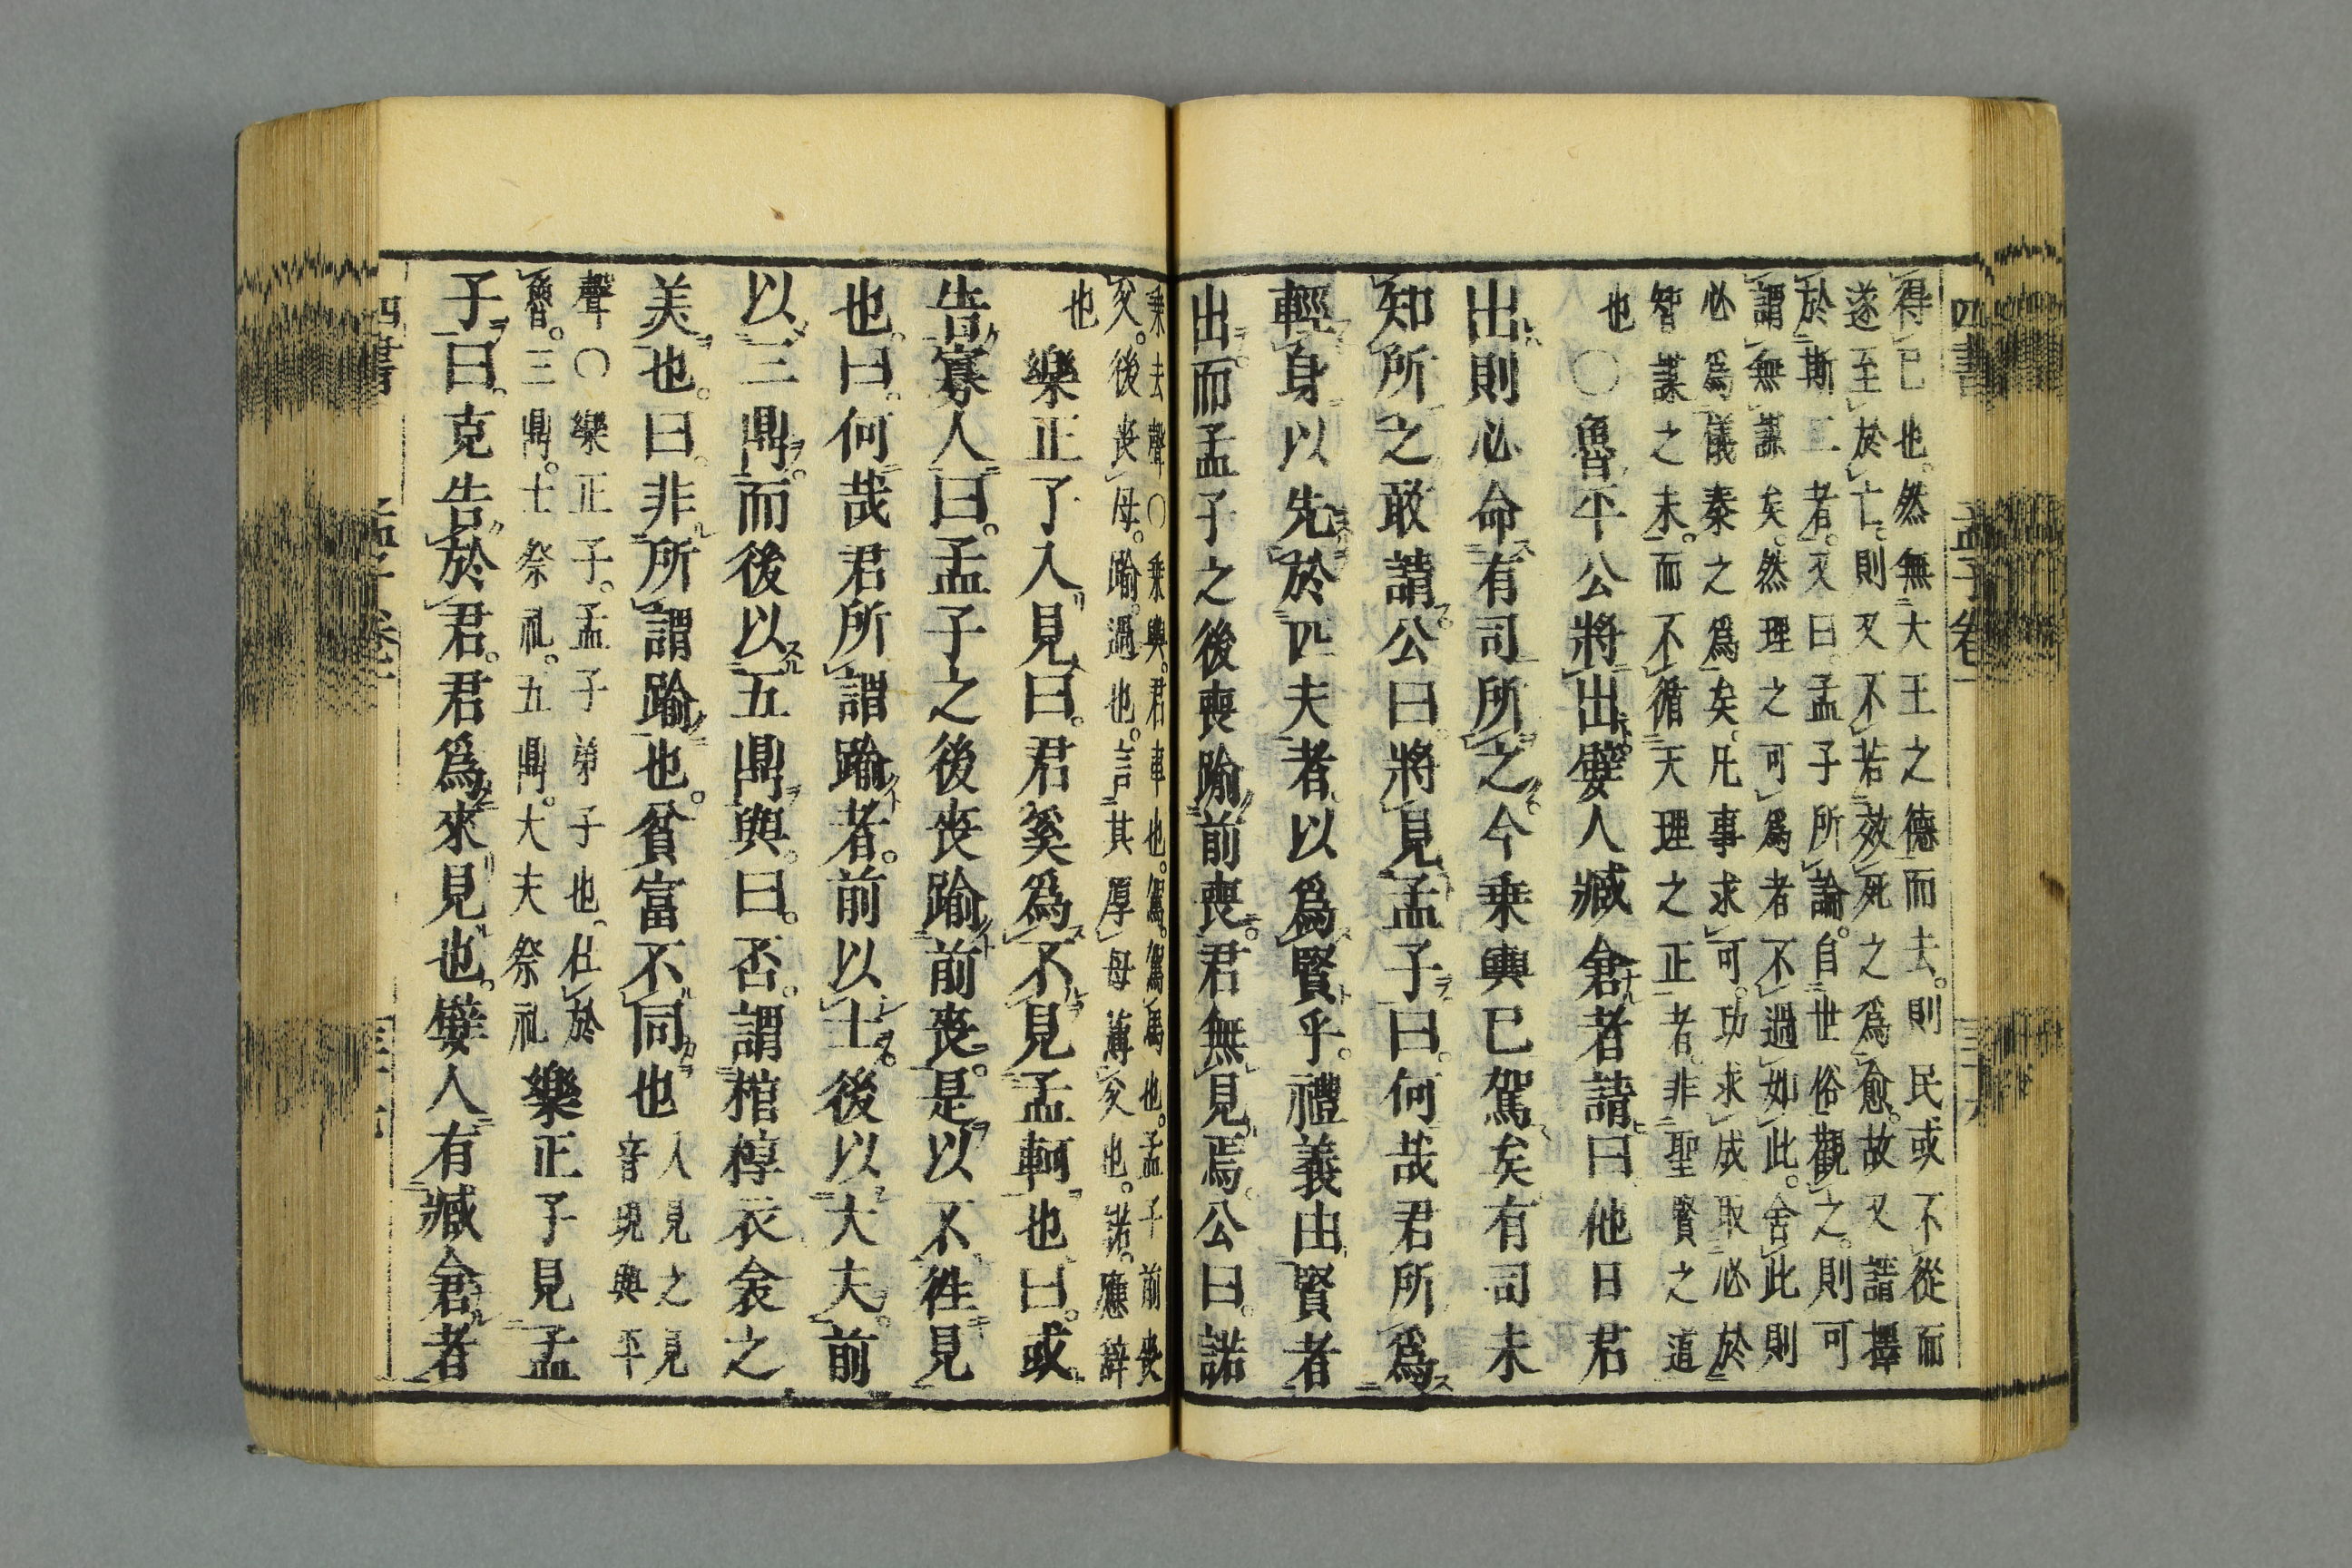 四書 孟子卷一 三十六
得已也。然無大王之德而去。則民或不從而
遂至於亡。則又不若效死之爲愈。故又請擇
於斯二者。又曰。孟子所論。自世俗觀之。則可
謂無謀矣。然理之可爲者。不過如此。舍此則
必爲儀秦之爲矣。凡事求可。功求成。取必於
智謀之末。而不循天理之正者。非聖賢之道
也〇魯平公將出。嬖人臧倉者請曰他日君
出。則必命有司所之。今乗輿已駕矣有司未
知所之敢請。公曰。將見孟子曰。何哉君所爲
輕身以先於匹夫者以爲賢乎。禮義由賢者
出。而孟子之後喪踰前喪。君無見焉。公曰。諾
乗去聲〇乗輿。君車也。駕。駕馬也。孟子前喪
父。後喪母。踰。過也。言其厚母薄父也。諾。應辭
也
樂正子入見曰。君奚爲不見孟軻也曰。或
告寡人曰。孟子之後喪踰前喪。是以不徃見
也。曰。何哉君所謂踰者。前以士。後以大夫。前
以三鼎。而後以五鼎與。曰。否。謂棺椁衣衾之
美也。曰。非所謂踰也。貧富不同也
入見之見
音現與平
聲〇樂正子。孟子弟子也。仕於
魯。三鼎。士祭礼。五鼎。大夫祭礼
樂正子見孟
子曰。克告於君。君爲來見也。嬖人有臧倉者
四書 孟子卷一